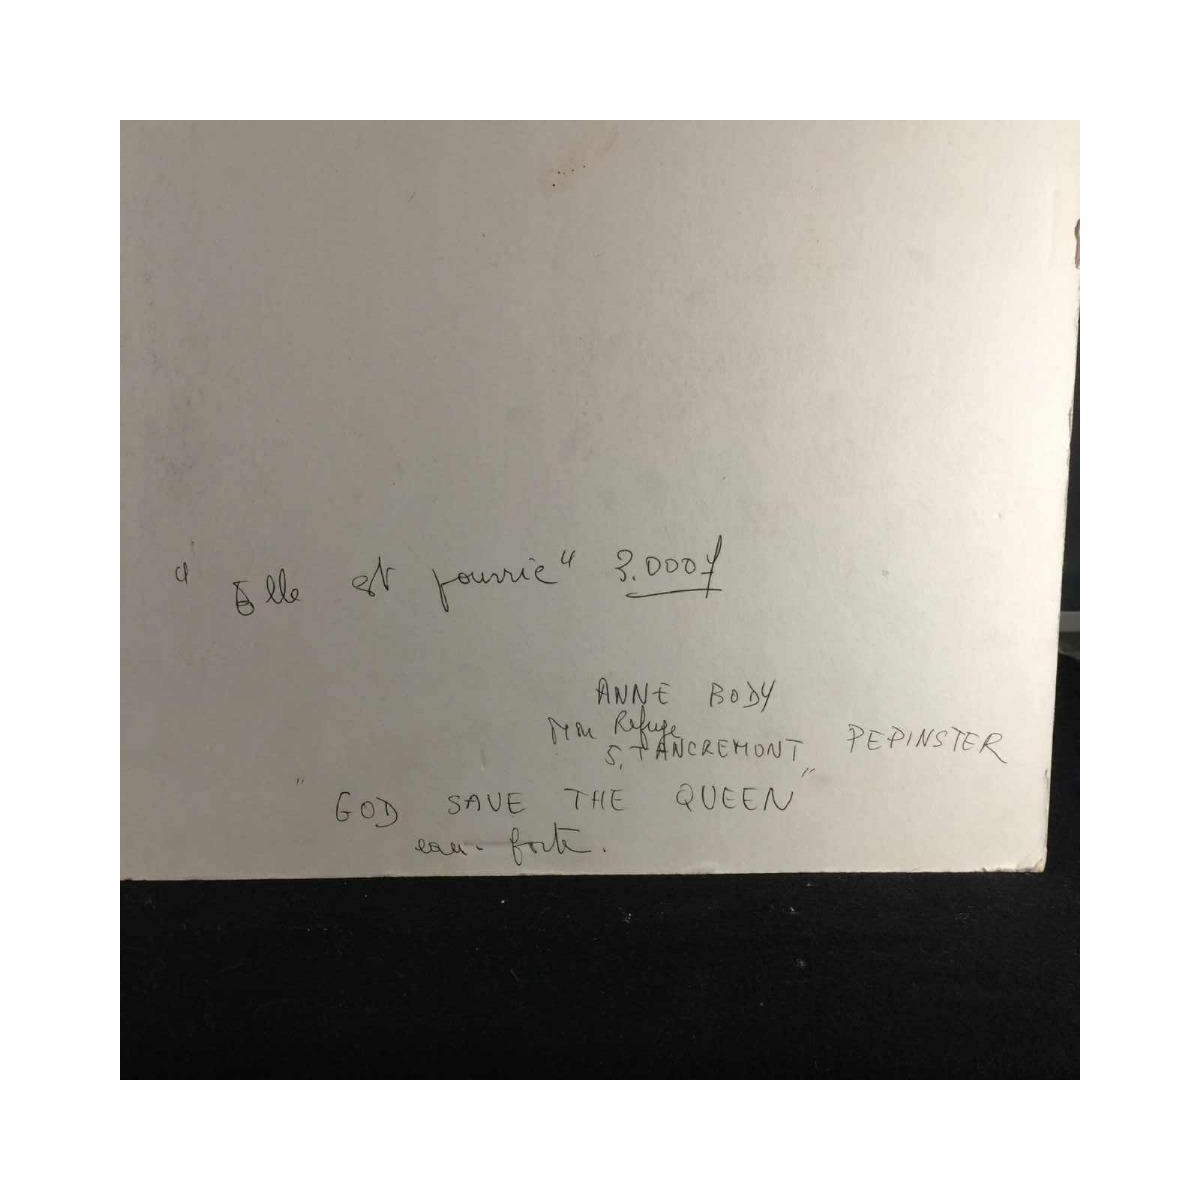 " Elle est pourrie " 3.000f
ANNE BODY
Mon Refuge
S, TANCREMONT, PEPINSTER
" GOD SAVE THE QUEEN "
eau-forte.